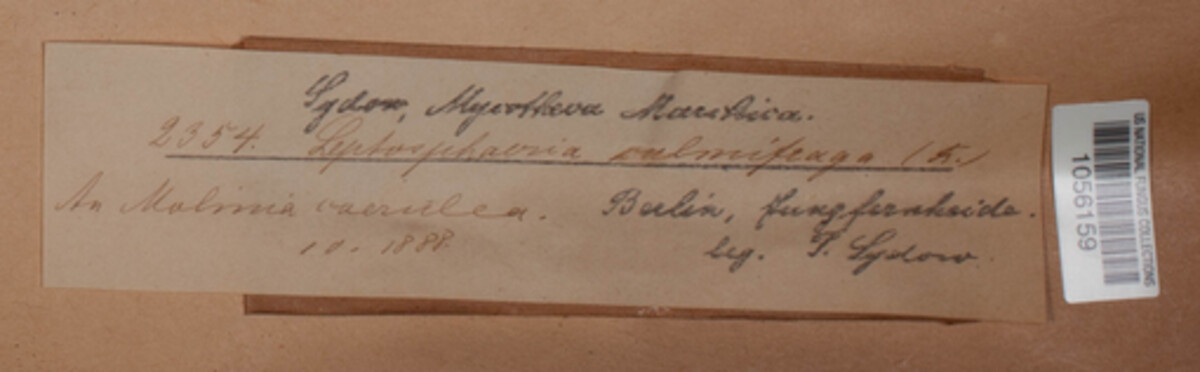 Sydow, Mycotheca Marchica.
2354. Leptosphaeria culmifraga (F.)
An Molinia caerulea. Berlin, Jungfernheide.
10. 1888. leg. P. Sydow.
US NATIONAL FUNGUS COLLECTIONS
1056159